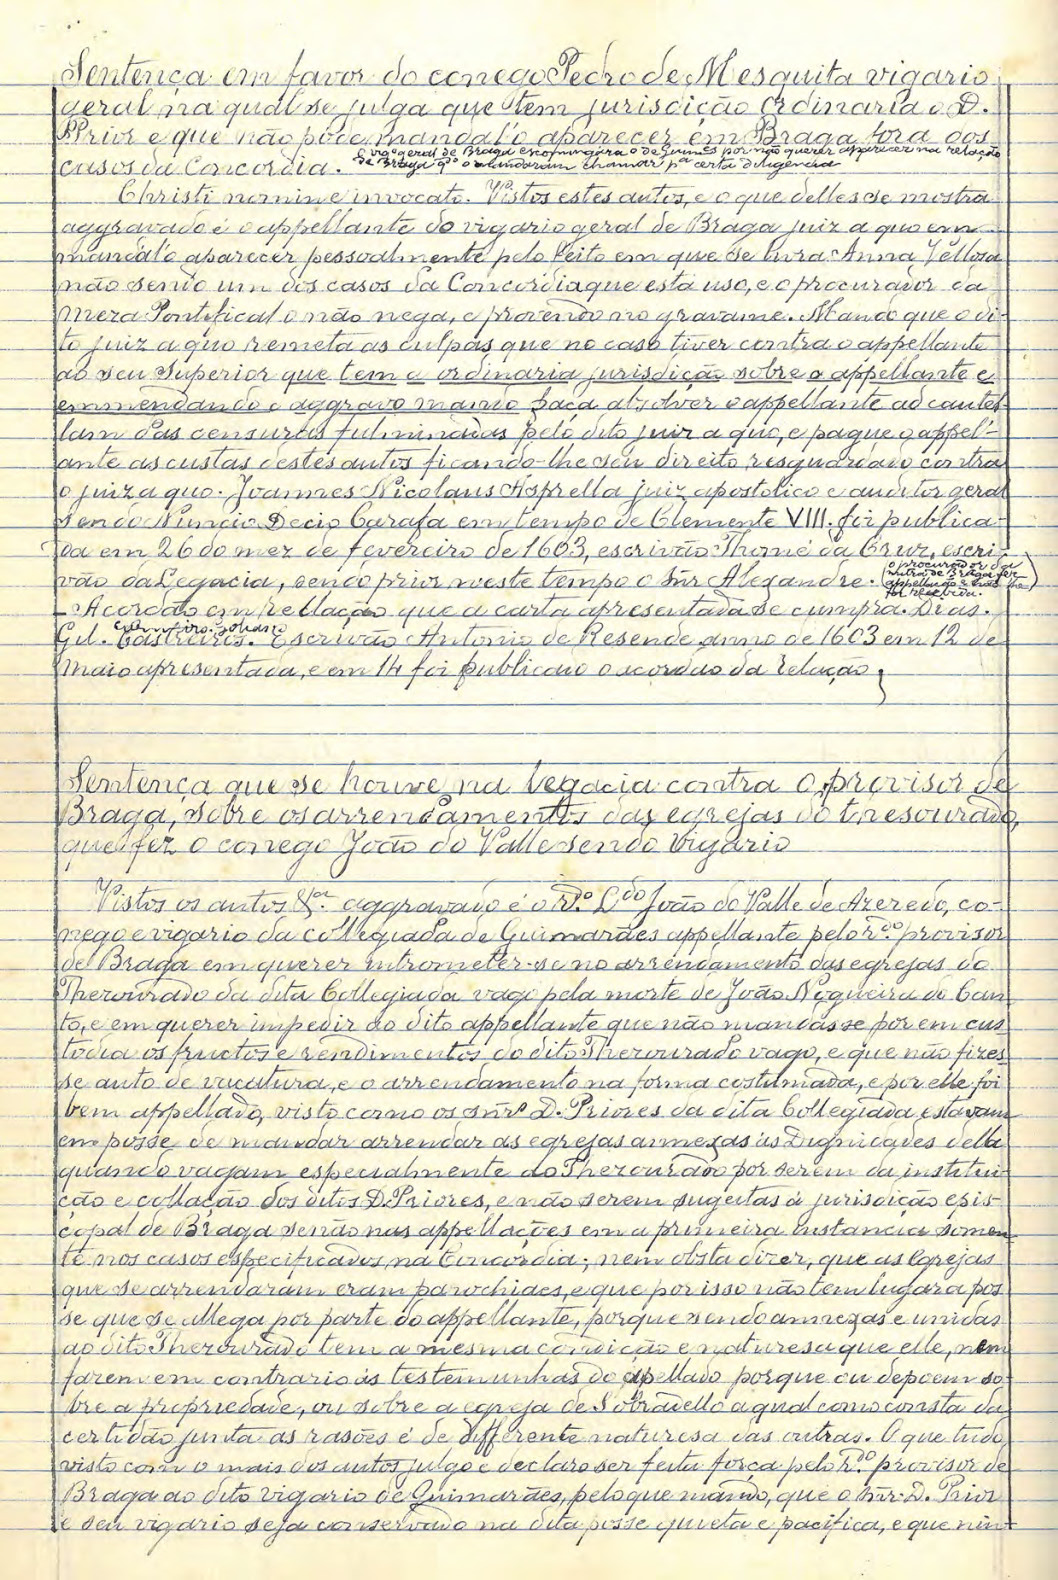 Sentença em favor do conego Pedro de Mesquita vigario
geral na qual se julga que tem jurisdição ordinaria o D.
Prior e que não póde mandal'o aparecer em Braga fora dos
casos da Concordia.
O vig. geral de Braga excomungára o de Guim.es por não querer apparecer na relação
de Braga q.do o mandaram chamar p.a certa diligencia
Christi nomine invocato. Vistos estes autos, e o que delles se mostra
aggravado é o appellante do vigario geral de Braga juiz a quo em
mandal'o aparecer pessoalmente pelo feito em que se livra Anna Vellosa
não sendo um dos casos da Concordia que está uso, e o procurador da
Meza Pontifical o não nega, e provendo no gravame. Mando que o di-
to juiz a quo remeta as culpas que no caso tiver contra o appellante
ao seu Superior que tem a ordinaria jurisdição sobre o appellante e
emmendando o aggravo mando faça absolver o appellante ad caute-
lam das censuras fulminadas pelo dito juiz a quo, e pague o appel-
ante as custas destes autos ficando-lhe seu direito resguardado contra
o juiz a quo. Joannes Nicolaus Asprella juiz apostolico e auditor geral
sendo Nuncio Decio Carafa em tempo de Clemente VIII. foi publica-
da em 26 do mez de fevereiro de 1603, escrivão Thomé da Cruz, escri-
vão da Legacia, sendo prior neste tempo o Snr Alexandre.
o procurador da
mitra de Braga fez
appellação e não lhe
foi recebida.
Acordão em rellação que a carta apresentada se cumpra. Dias.
Gil. Castreiros. Escrivão Antonio de Resende anno de 1603 em 12 de
Maio apresentada, e em 14 foi publicado o acordão da relação
Sentença que se houve na legacia contra o provisor de
Braga, sobre os arrendamentos das egrejas do thesourado,
que fez o conego João do Valle sendo Vigario
Vistos os autos &.a aggravado é o R.do L.do João do Valle de Azeredo, co-
nego e vigario da collegiada de Guimarães appellante pelo r.do provisor
de Braga em querer intrometer-se no arrendamento das egrejas do
Thezourado da dita Collegiada vago pela morte de João Nogueira do Can-
to, e em querer impedir ao dito appellante que não mandasse por em cus-
todia os fructos e rendimentos do dito Thezourado vago, e que não fizes-
se auto de vacatura, e o arrendamento na forma costumada, e por elle foi
bem appellado, visto como os snr.s D. Priores da dita Collegiada estavam
em posse de mandar arrendar as egrejas annexas ás Dignidades della
quando vagam especialmente do Thezourado por serem da institui-
ção e collação dos ditos D. Priores, e não serem sugeitas á jurisdição epis-
copal de Braga senão nas appellações em a primeira instancia somen-
te nos casos especificados na Concordia; nem obsta dizer, que as Egrejas
que se arrendaram eram parochiaes, e que por isso não tem lugar a pos-
se que se allega por parte do appellante, porque sendo annexas e unidas
ao dito Thezourado tem a mesma condição e naturesa que elle, nem
fazem em contrario ás testemunhas do apellado porque ou depoem so-
bre a propriedade, ou sobre a egreja de Sobradello a qual como consta da
certidão junta as rasões é de differente naturesa das outras. O que tudo
visto com o mais dos autos julgo e declaro ser feita força pelo r.do provisor de
Braga ao dito vigario de Guimarães, pelo que mando, que o Snr. D. Prior
e seu vigario seja conservado na dita posse quieta e pacifica, e que nin-